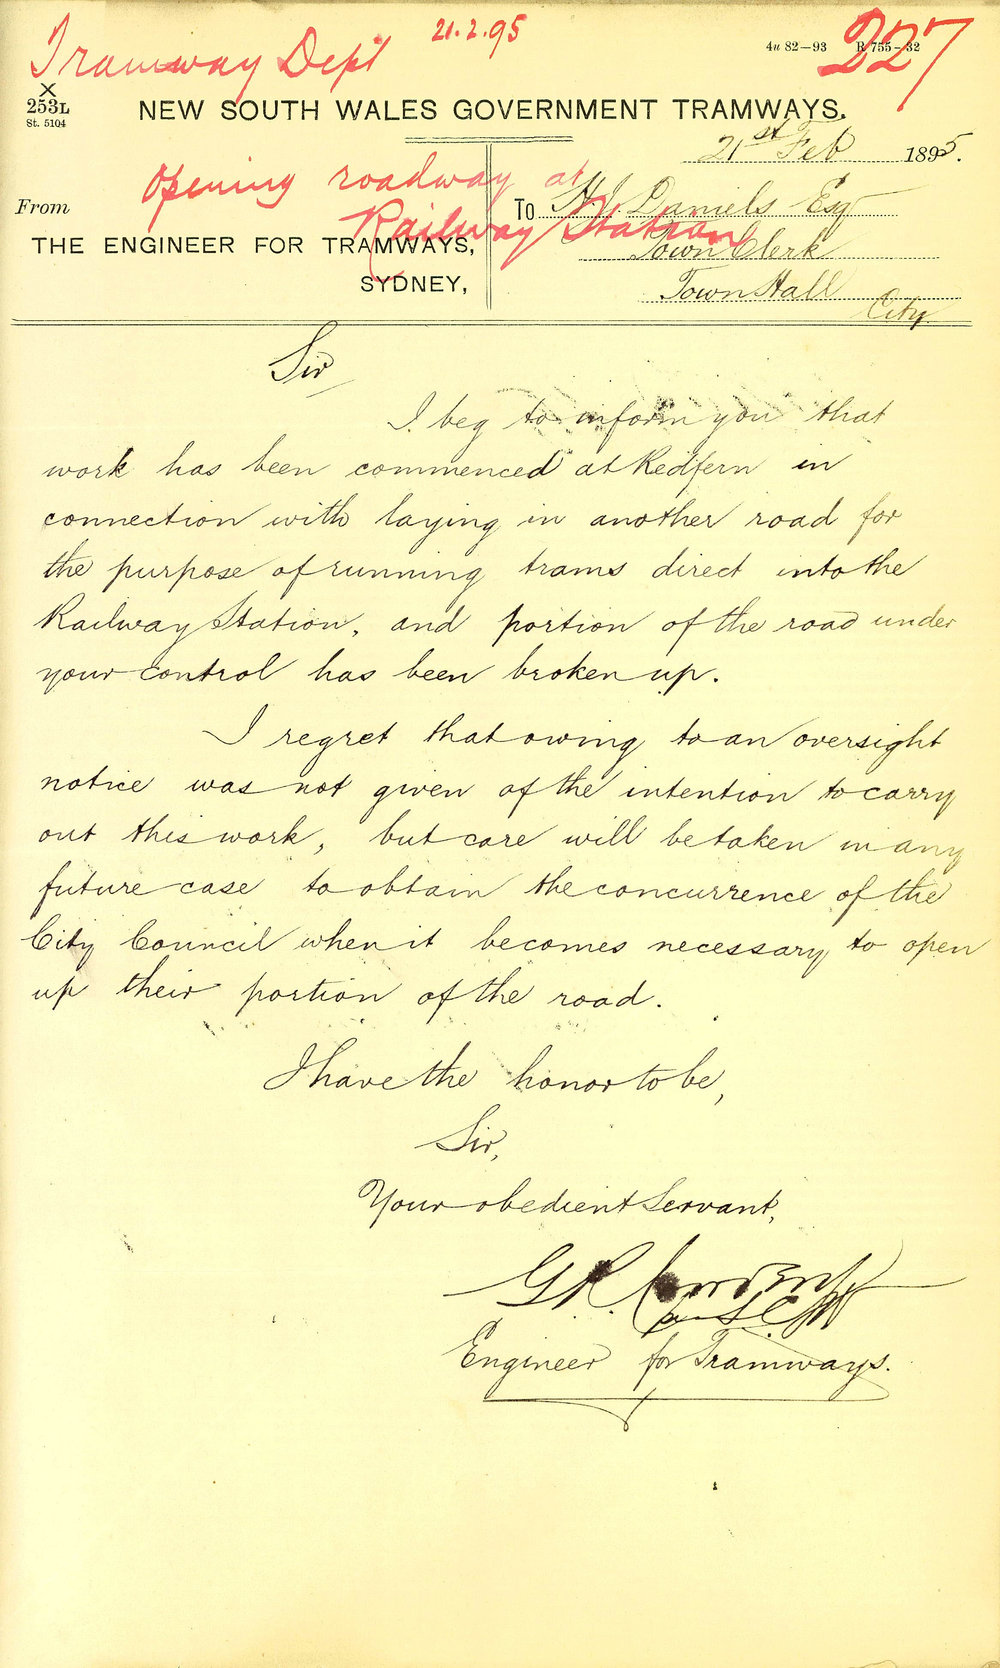 Tramway Dept
21.2.95
4u 82—93 R 755—32
227
X
253L
St. 5104
NEW SOUTH WALES GOVERNMENT TRAMWAYS.
21st Feb 1895.
Opening roadway at
Railway Station
From
THE ENGINEER FOR TRAMWAYS,
SYDNEY,
To H J Daniels Esq
Town Clerk
Town Hall
City
Sir
I beg to inform you that
work has been commenced at Redfern in
connection with laying in another road for
the purpose of running trams direct into the
Railway Station, and portion of the road under
your control has been broken up.
I regret that owing to an oversight
notice was not given of the intention to carry
out this work, but care will be taken in any
future case to obtain the concurrence of the
City Council when it becomes necessary to open
up their portion of the road.
I have the honor to be,
Sir,
Your obedient Servant,
G.R.
Engineer for Tramways.